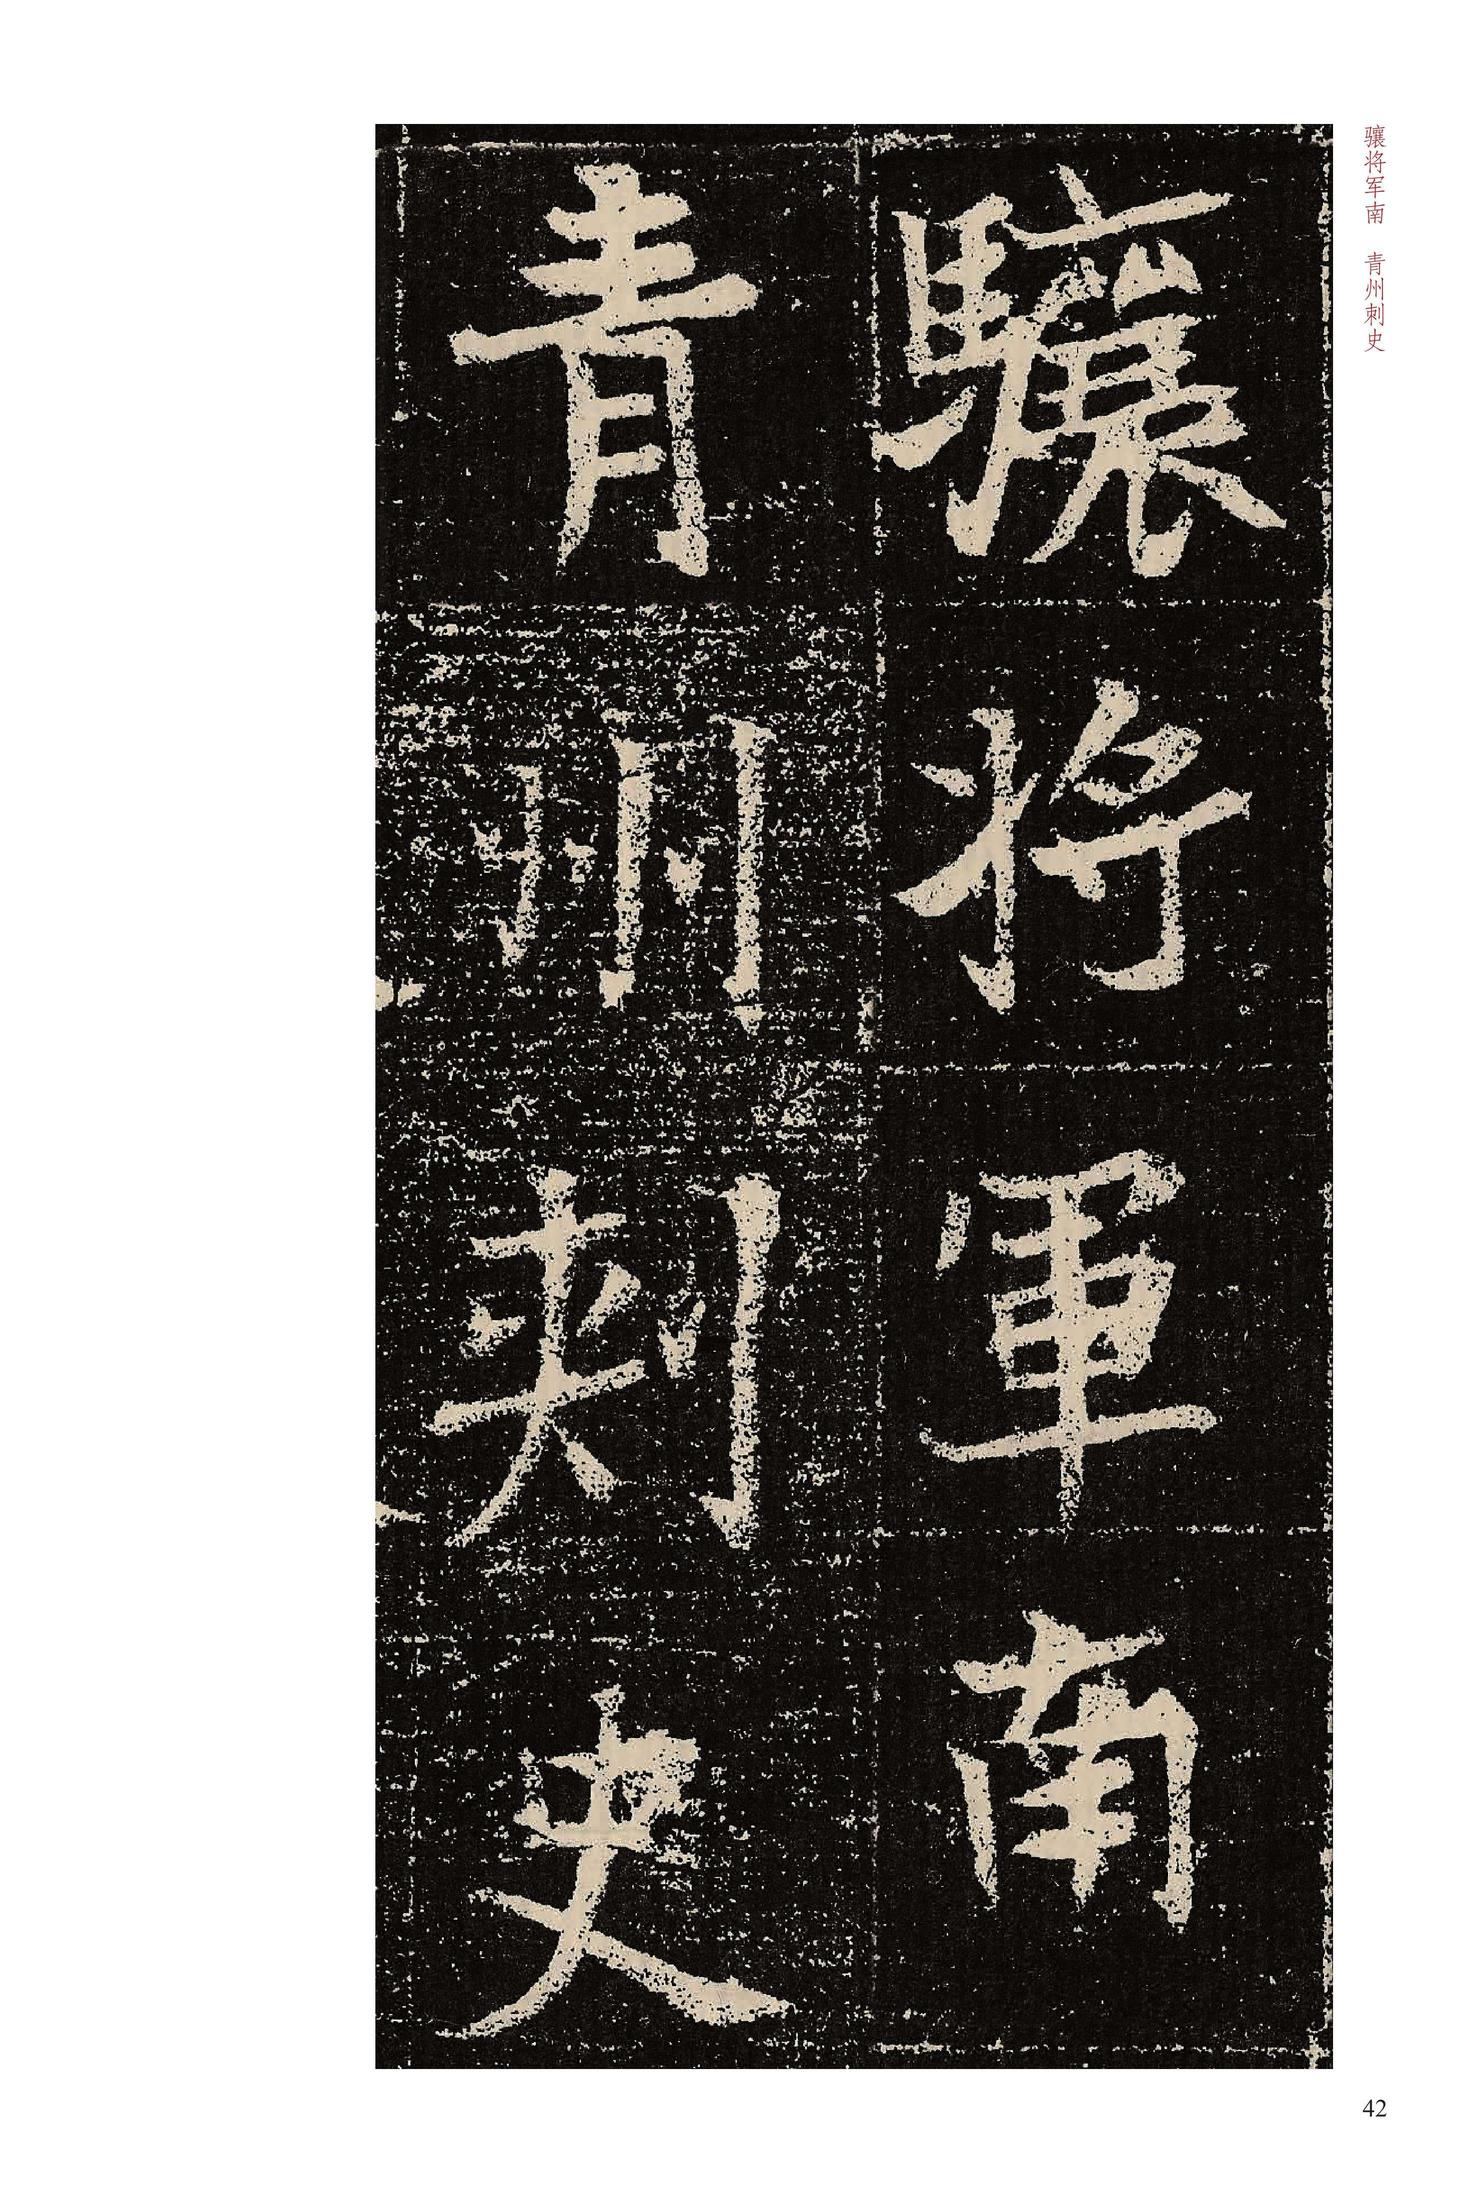 驤将軍南
青州刺史
骧将军南　青州刺史
42